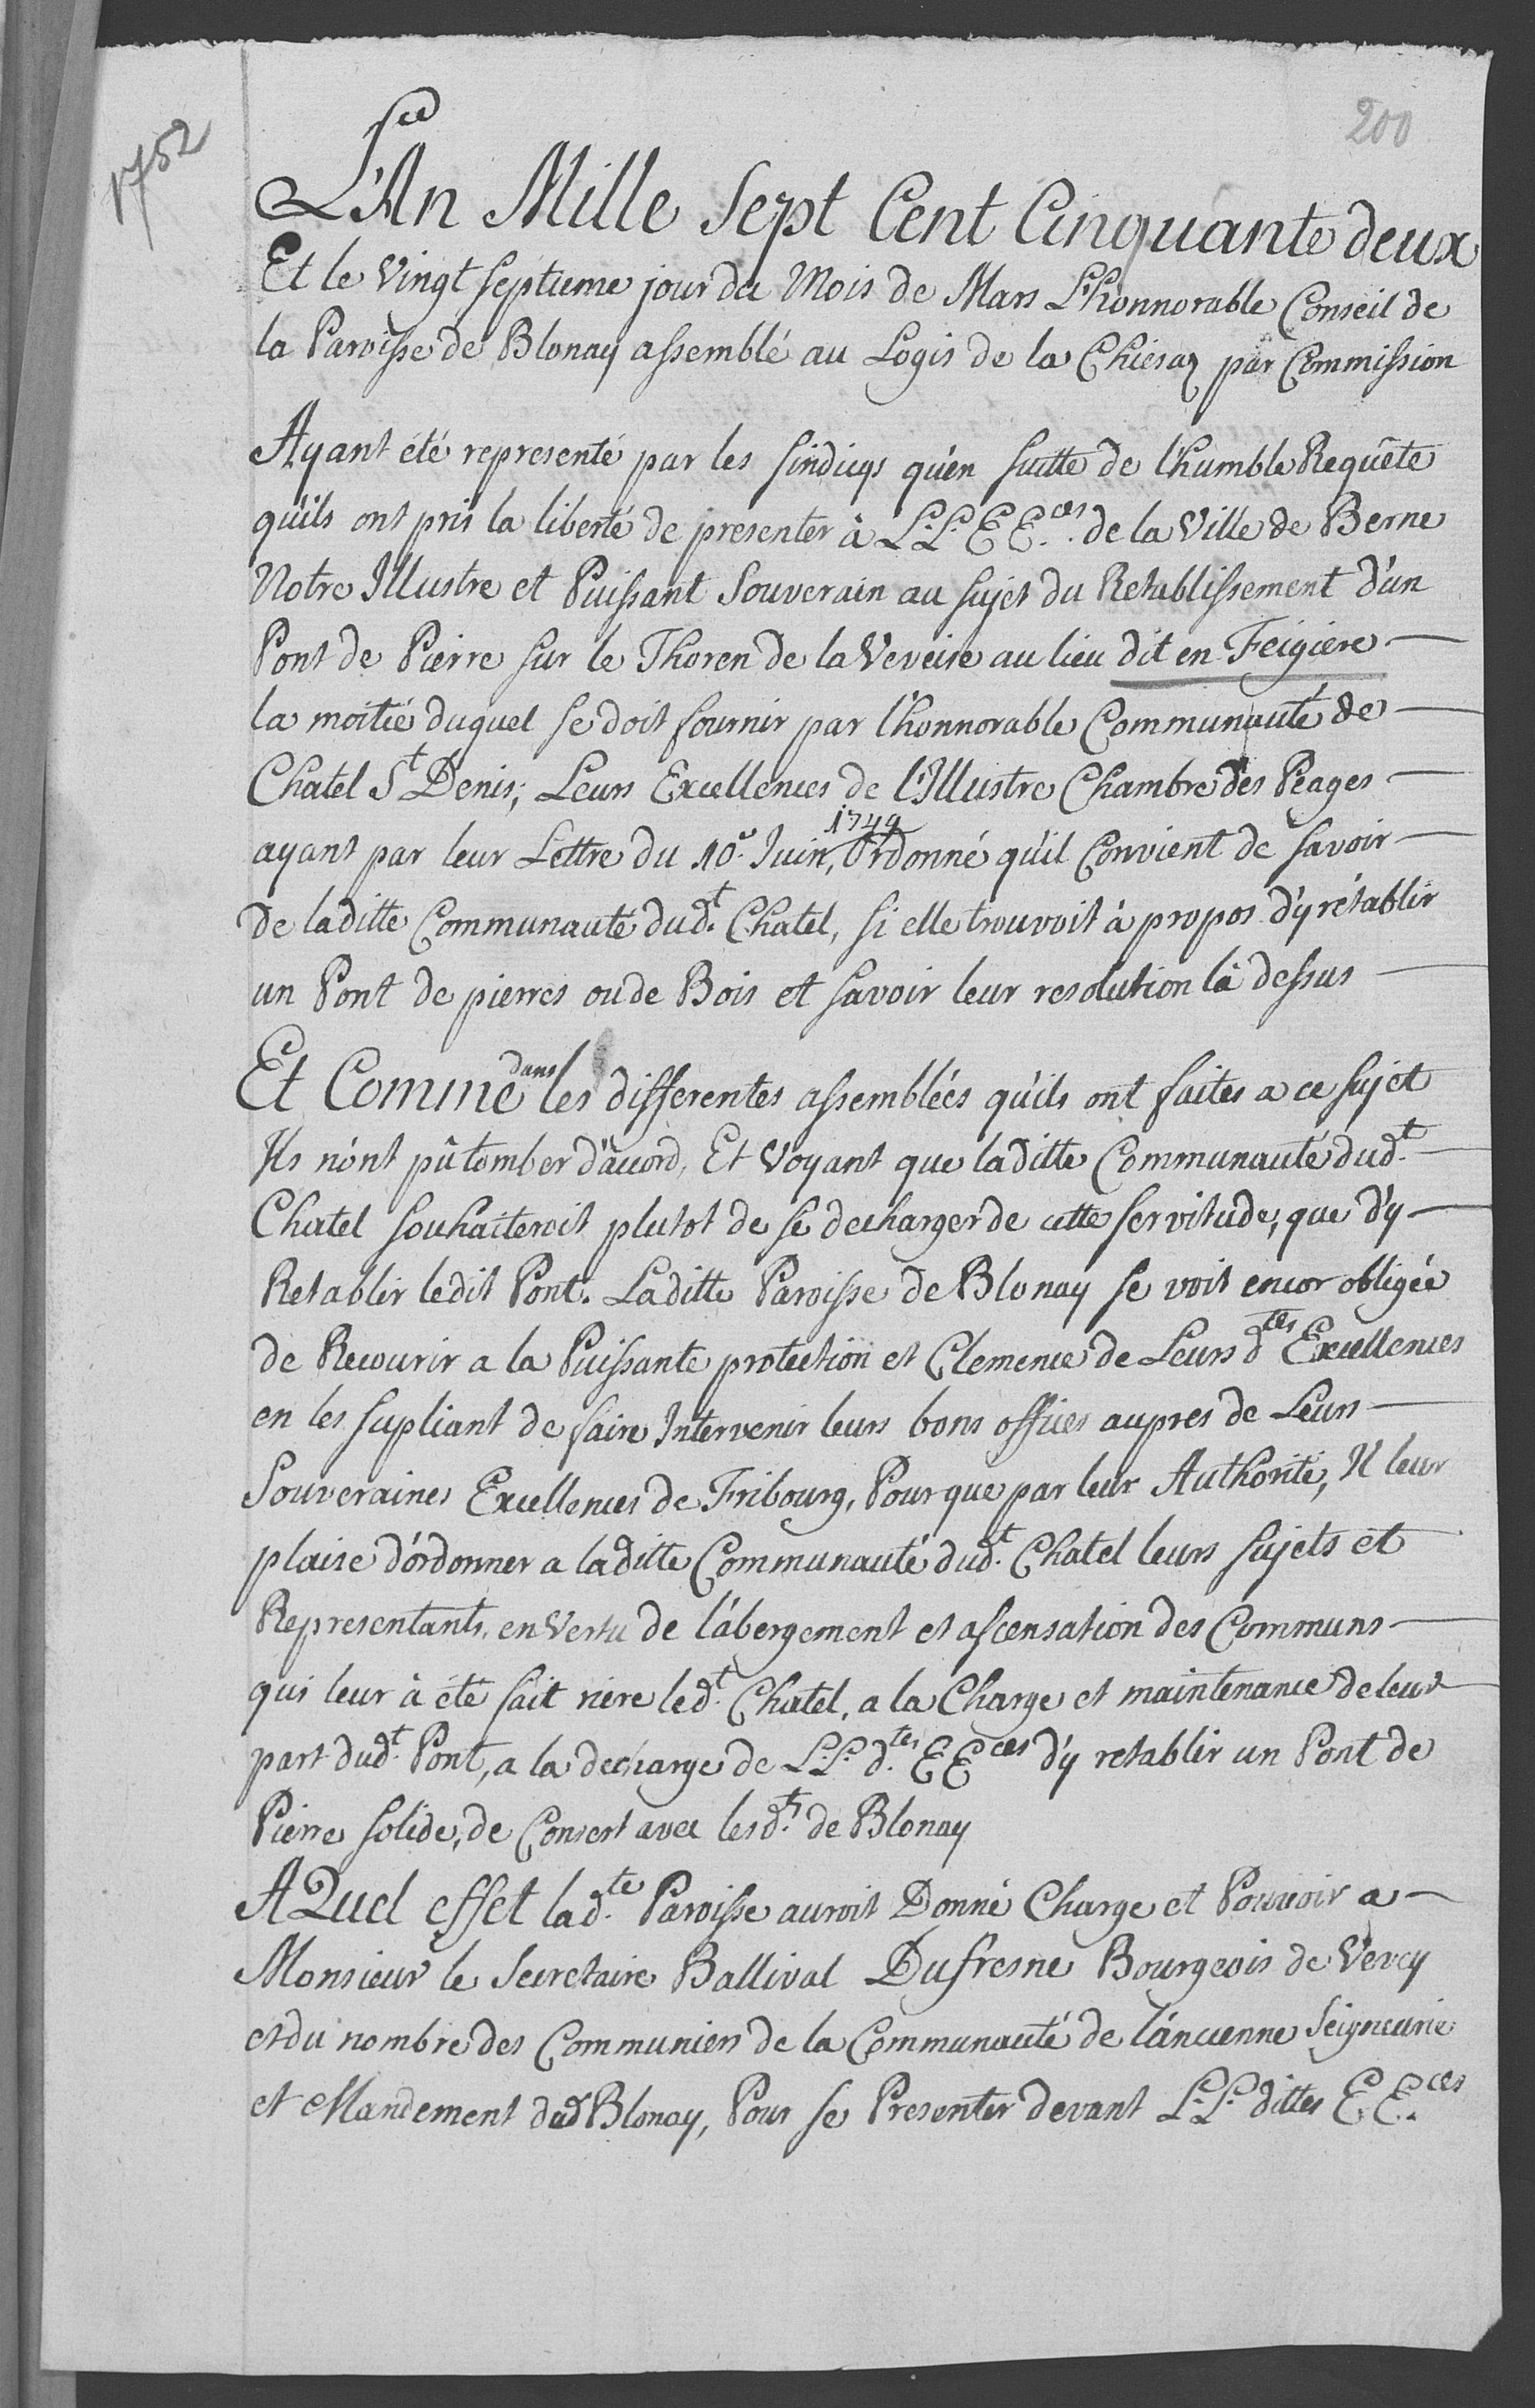 200
1752
L'An Mille Sept Cent Cinquante deux
Et le Vingt septieme jour du Mois de Mars L'honnorable Conseil de
la Paroisse de Blonay assemblé au Logis de la Chiesaz par Commission
Ayant été representé par les sindicqs qu'en suitte de l'humble Requête
qu'ils ont pris la liberté de presenter à L.L. E E.ces de la Ville de Berne
Notre Illustre et Puissant Souverain au sujet du Retablissement d'un
Pont de Pierre sur le Thoren de la Veveise au lieu dit en Feigiere
la moitié duquel se doit fournir par l'honnorable Communauté de
Chatel St Denis; Leurs Excellences de l'Illustre Chambre des Peages
ayant par leur Lettre du 10e. Juin, 1749 Ordonné qu'il Convient de savoir
de laditte Communauté dudt. Chatel, si elle trouvoit à propos d'y rétablir
un Pont de pierres ou de Bois et savoir leur resolution là dessus
Et Comme dans les differentes assemblées qu'ils ont faites a ce sujet
Ils n'ont pû tomber d'accord, Et Voyant que laditte Communauté dudt.
Chatel souhaiteroit plutot de se decharger de cette servitude, que d'y
Retablir ledit Pont. Laditte Paroisse de Blonay se voit encor obligée
de Recourir a la Puissante protection et Clemence de Leurs dtes Excellences
en les supliant de faire Intervenir leurs bons offices aupres de Leurs
Souveraines Excellences de Fribourg, Pour que par leur Authorité, Il leur
plaise d'ordonner a laditte Communauté dudt. Chatel leurs sujets et
Representants, en Vertu de l'abergement et ascensation des Communs
qui leur à été fait riere ledt. Chatel, a la Charge et maintenance de leur
part dudt. Pont, a la decharge de L.L. d.tes E E ces d'y retablir un Pont de
Pierre solide, de Consert avec lesd.ts de Blonay
A Quel effet lad.te Paroisse auroit Donné Charge et Pouvoir a
Monsieur le Secretaire Ballival Dufresne Bourgeois de Vevey
et du nombre des Communiers de la Communauté de l'ancienne Seigneurie
et Mandement dud Blonay, Pour se Presenter devant L.L. dittes E E.ces